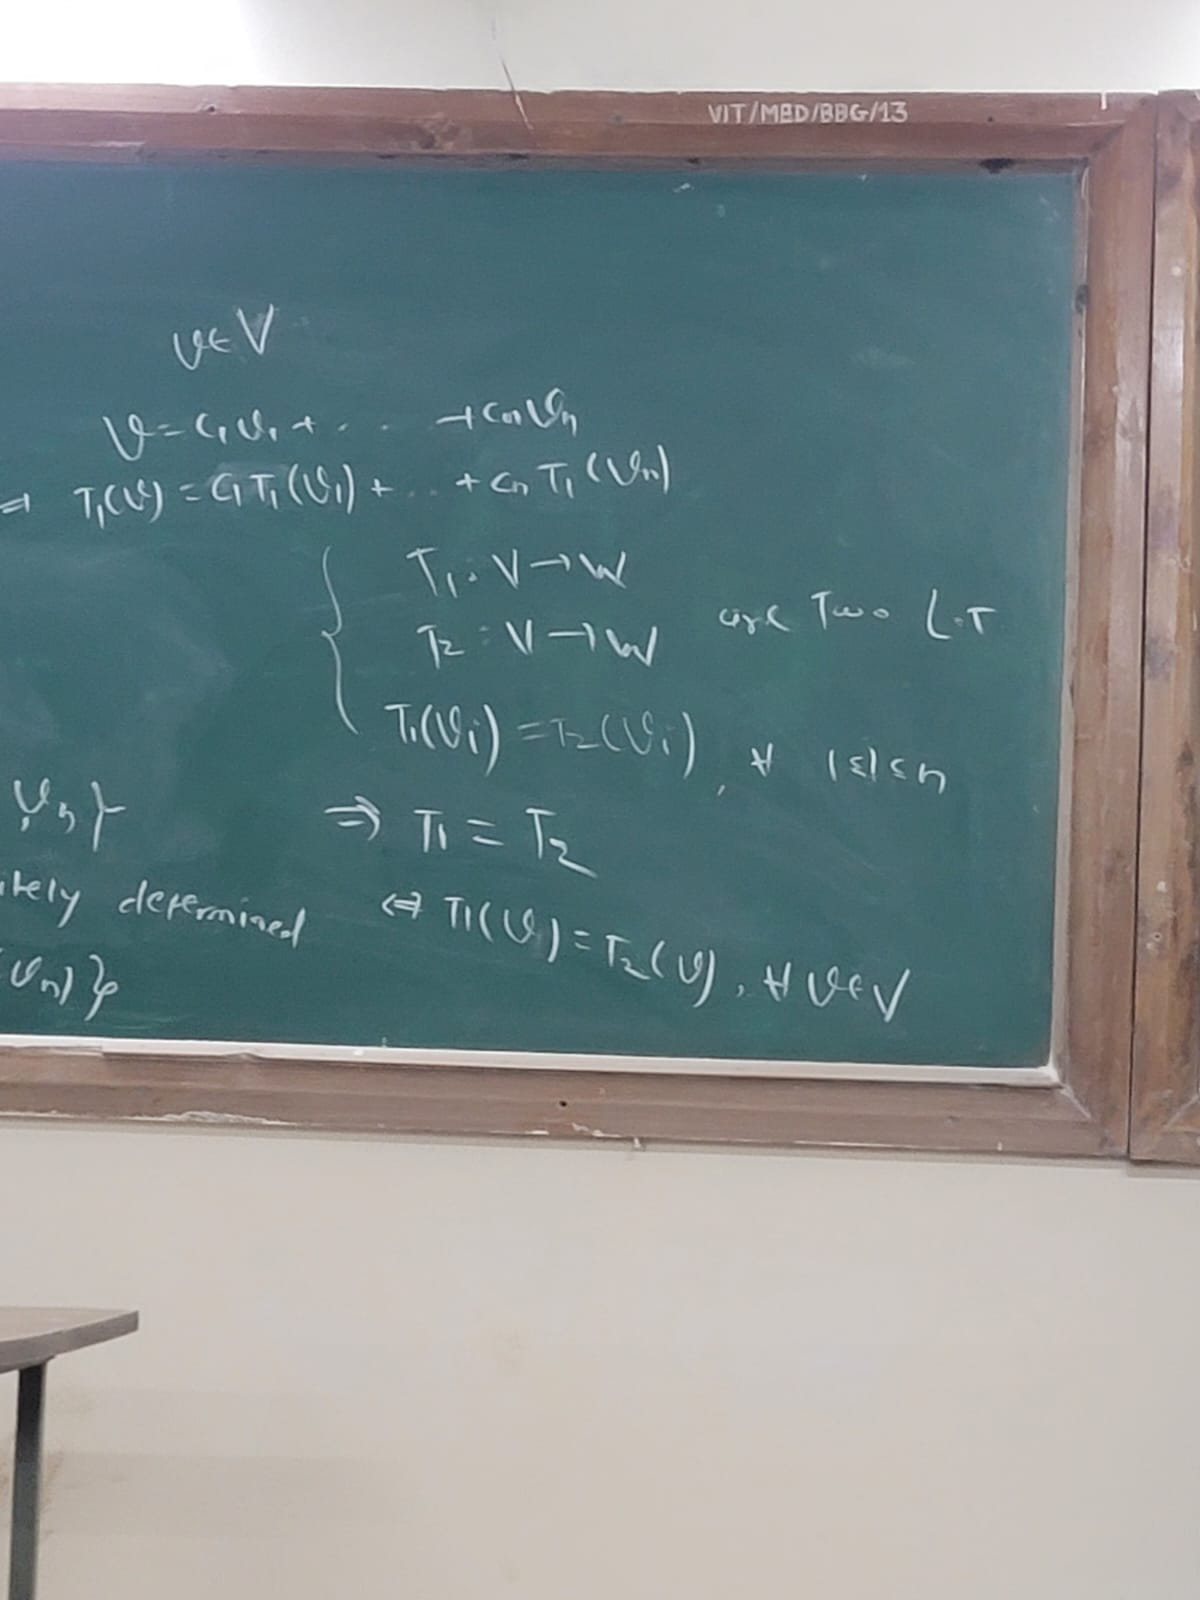 VIT/MBD/BBG/13
v∈V
v=c₁v₁+ . . . +cₙvₙ
⇒ T₁(v) = c₁T₁(v₁) + .. + cₙ T₁(vₙ)
T₁: V→W
T₂: V→W are Two L.T
T₁(vᵢ) = T₂(vᵢ), ∀ 1≤i≤n
vₙ} ⇒ T₁ = T₂
determined ⇔ T₁(v) = T₂(v), ∀ v∈V
vₙ)}